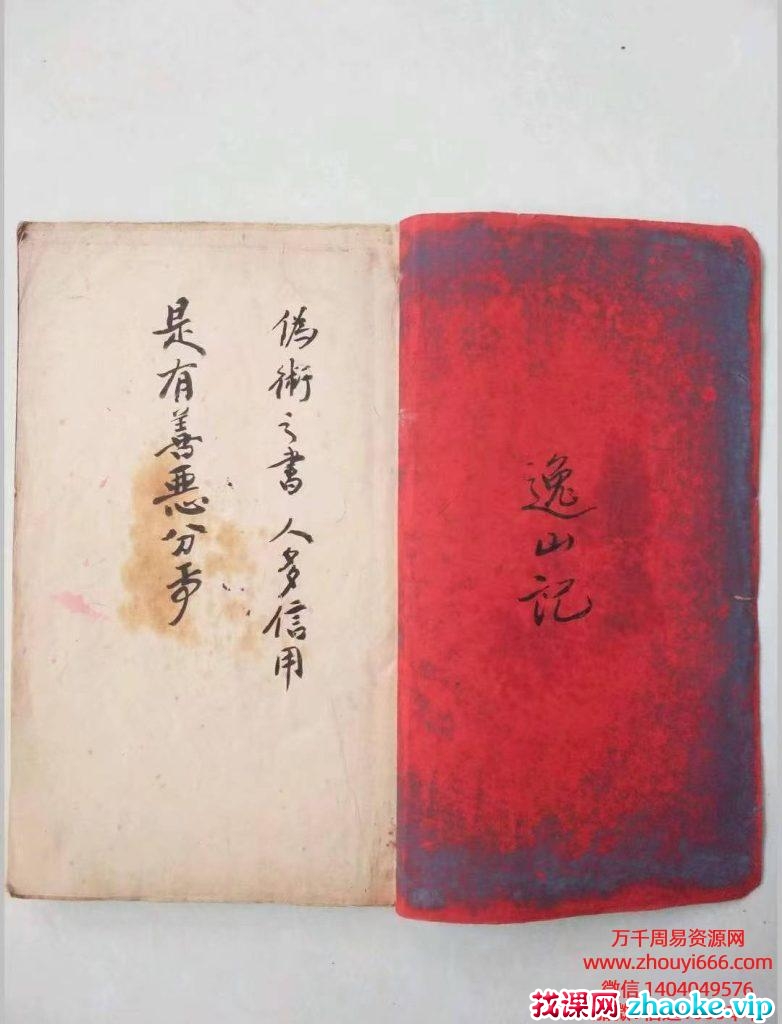 逸山記
偽術之書 人多信用
是有善悪分乎
万千周易资源网
www.zhouyi666.com
微信 1404049576
找课网zhaoke.vip